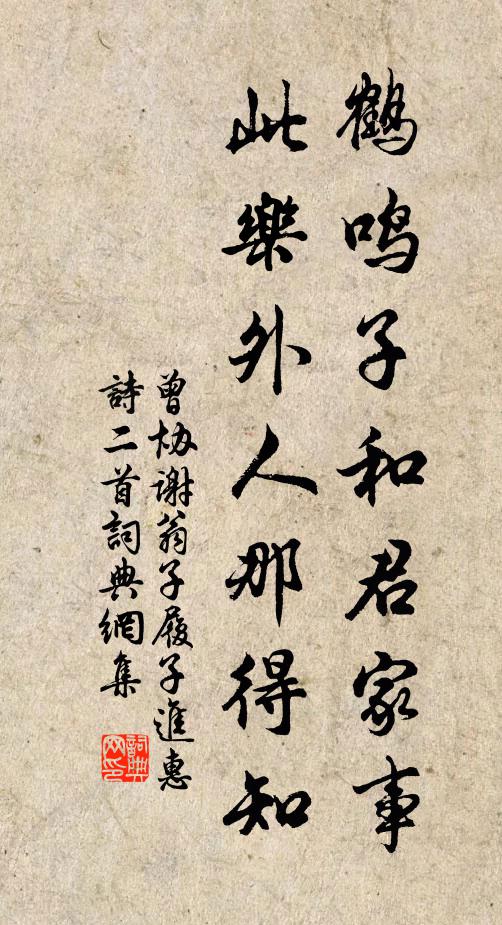 鶴鳴子和君家事
此樂外人那得知
曾協謝翁子履子進惠
詩二首詞典網集
詞典
网印